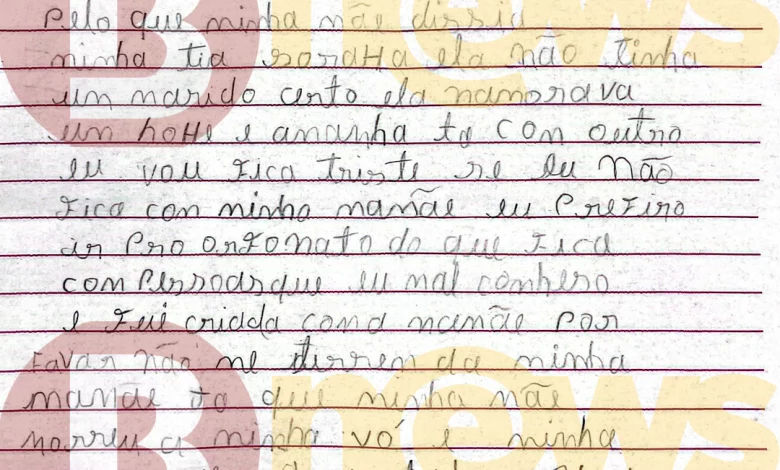 Pelo que minha mãe dissia
minha tia soraHa ela não tinha
um marido certo ela namorava
um hoHe e amanha ta con outro
eu vou Fica triste se eu Não
Fica con minha mamãe eu PreFiro
ir Pro orFonato do que Fica
con Perssoas que eu mal conheso
e Fui criada coma mamãe Por
Favar não me tirrem da minha
mamãe ta que minha mãe
morreu a minha vó e minha